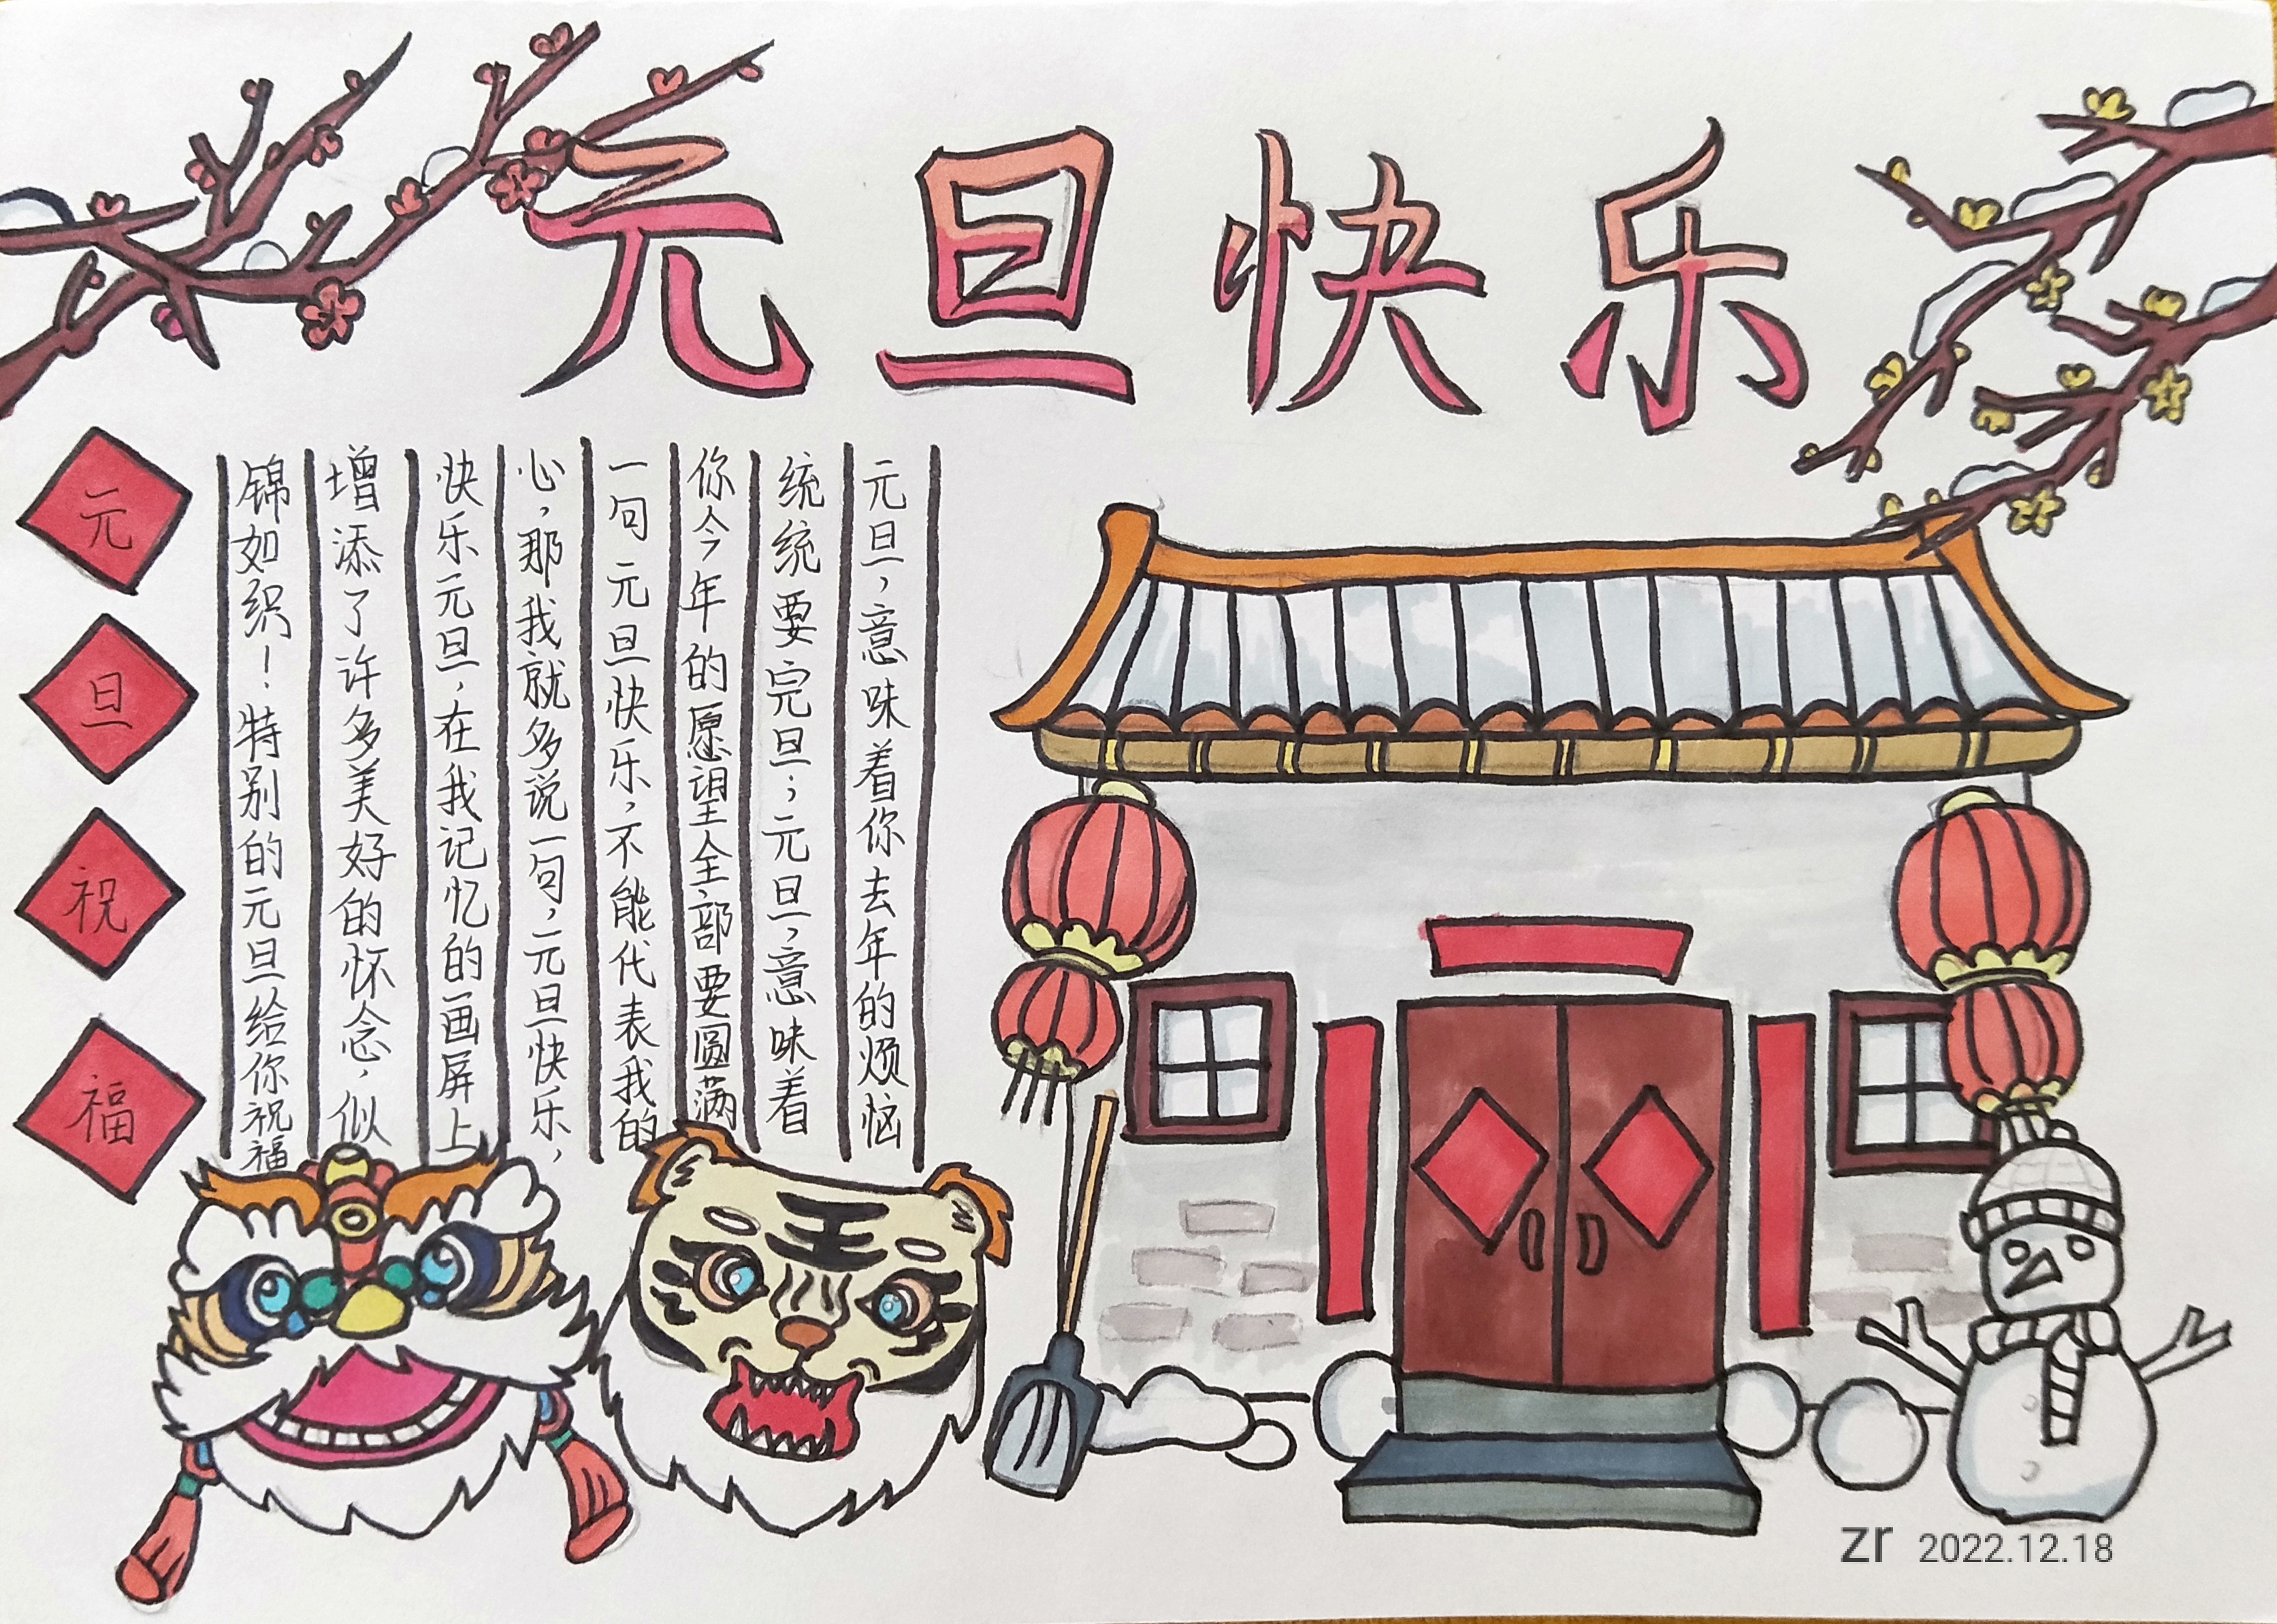 元旦快乐
元
旦
祝
福
元旦，意味着你去年的烦恼
统统要完旦；元旦，意味着
你今年的愿望全部要圆满
一句元旦快乐，不能代表我的
心，那我就多说一句，元旦快乐，
快乐元旦，在我记忆的画屏上
增添了许多美好的怀念，似
锦如织！特别的元旦给你祝福
王
zr 2022.12.18